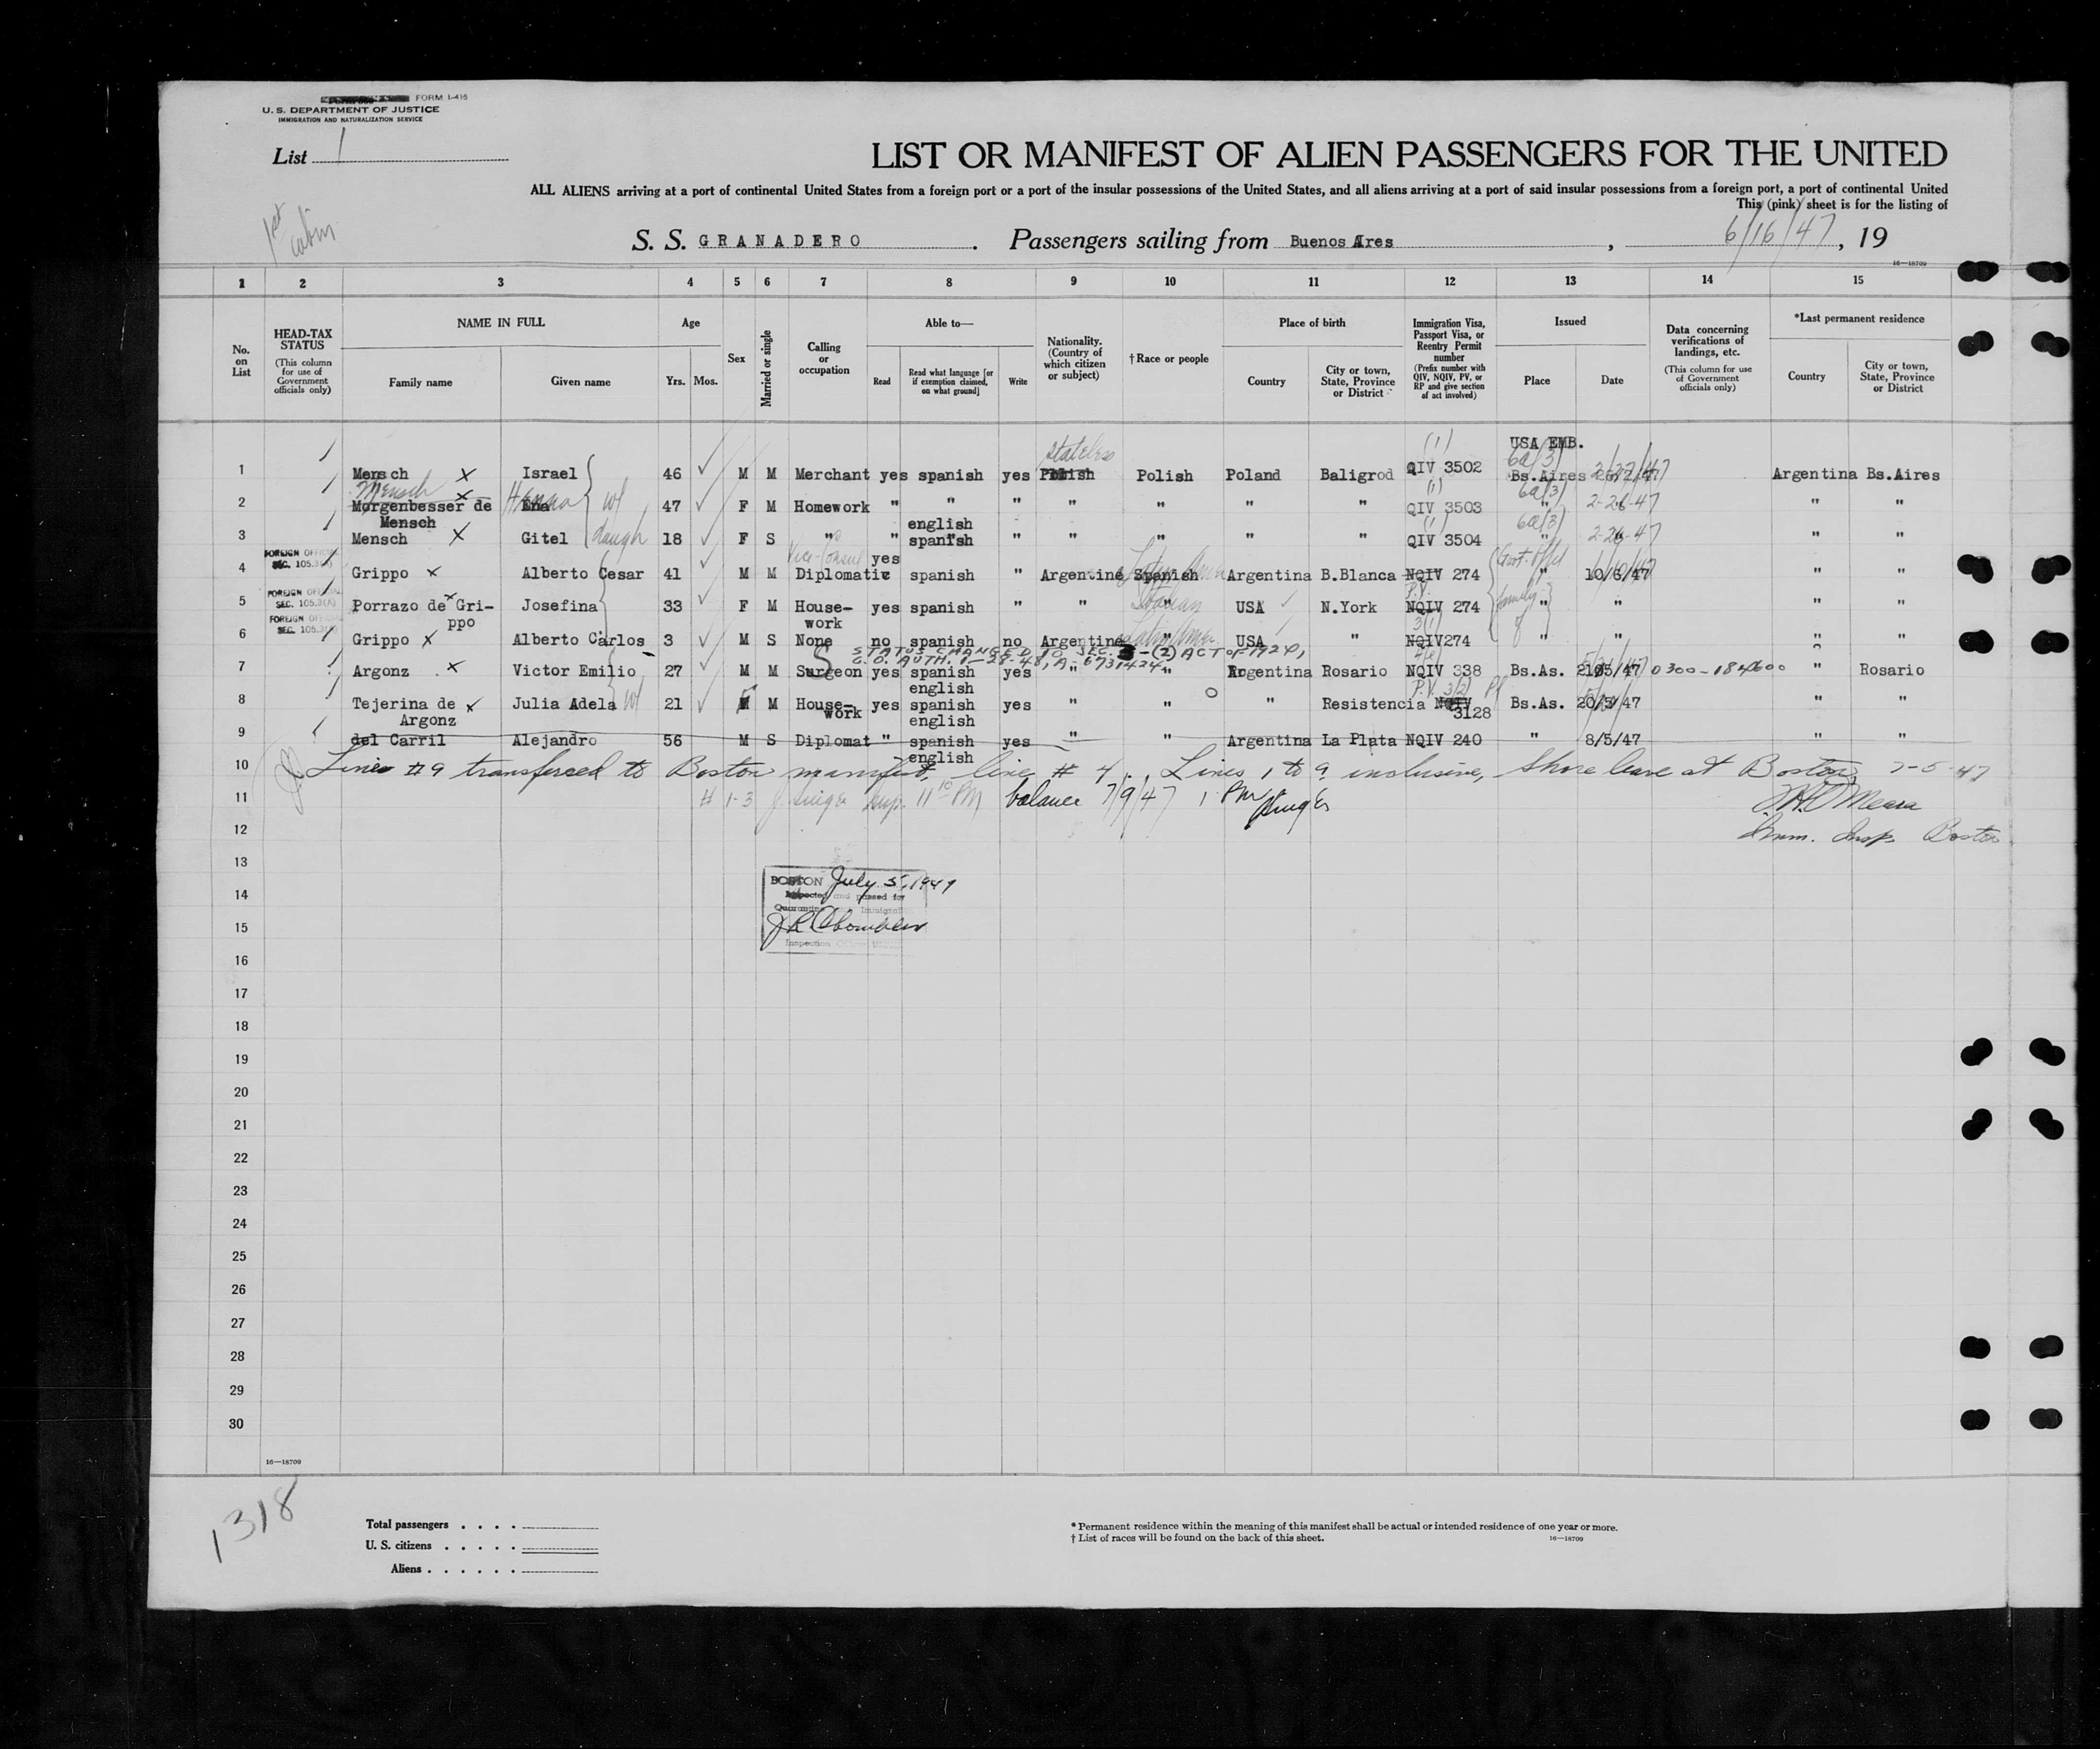 FORM I-415
U. S. DEPARTMENT OF JUSTICE
IMMIGRATION AND NATURALIZATION SERVICE
List 1
1st cabin
LIST OR MANIFEST OF ALIEN PASSENGERS FOR THE UNITED
ALL ALIENS arriving at a port of continental United States from a foreign port or a port of the insular possessions of the United States, and all aliens arriving at a port of said insular possessions from a foreign port, a port of continental United
This (pink) sheet is for the listing of
S. S. GRANADERO . Passengers sailing from Buenos Aires , 6/16/47 , 19
16—18709
1 2 3 4 5 6 7 8 9 10 11 12 13 14 15
No. on List
HEAD-TAX STATUS (This column for use of Government officials only)
NAME IN FULL
Family name Given name
Age
Yrs. Mos.
Sex
Married or single
Calling or occupation
Able to—
Read Read what language [or if exemption claimed, on what ground] Write
Nationality. (Country of which citizen or subject)
†Race or people
Place of birth
Country City or town, State, Province or District
Immigration Visa, Passport Visa, or Reentry Permit number (Prefix number with QIV, NQIV, PV, or RP and give section of act involved)
Issued
Place Date
Data concerning verifications of landings, etc. (This column for use of Government officials only)
*Last permanent residence
Country City or town, State, Province or District
stateless (1) USA EMB.
6a(3)
1 Mensch X Israel 46 M M Merchant yes spanish yes Polish Polish Poland Baligrod QIV 3502 Bs.Aires Argentina Bs.Aires
Mensch X Hanna wf (1) 6a(3)
2 Morgenbesser de Mensch 47 F M Homework " " " " " " " QIV 3503 " 2-26-47 " "
english (1) 6a(3)
3 Mensch X Gitel daugh 18 F S " " spanish " " " " " QIV 3504 " 2-26-47 " "
FOREIGN OFFICIAL SEC. 105.3(A) Vice-Consul yes Govt. Offcl
4 Grippo X Alberto Cesar 41 M M Diplomatic spanish " Argentine Spanish Argentina B.Blanca NQIV 274 " 10/6/47 " "
FOREIGN OFFICIAL SEC. 105.3(A) Italian P.V. family of
5 Porrazo de Grippo X Josefina 33 F M House-work yes spanish " " USA N.York NQIV 274 " " " "
FOREIGN OFFICIAL SEC. 105.3(A) Latin Amer. 3(1)
6 Grippo X Alberto Carlos 3 M S None no spanish no Argentine USA " NQIV274 " " " "
STATUS CHANGED TO SEC. 3-(2) ACT OF 1924,
C.O. AUTH. 1-28-48, A-6731424
7 Argonz X Victor Emilio 27 M M Surgeon yes spanish english yes " " Argentina Rosario NQIV 338 Bs.As. 0300-184600 " Rosario
P.V. 3(2)
8 Tejerina de Argonz X Julia Adela wf 21 M House-work yes spanish english yes " " " Resistencia NQIV 3128 Bs.As. " "
9 del Carril Alejandro 56 M S Diplomat " spanish english yes " " Argentina La Plata NQIV 240 " 8/5/47 " "
10 Line #9 transferred to Boston manifest, line #4. Lines 1 to 9 inclusive, shore leave at Boston, 7-5-47
11 # 1-3 J Singer Insp. 11 10 PM balance 7/9/47 1 PM Singer
J.H. O'Meara
12 Imm. Insp. Boston
13
BOSTON July 5, 1947
14 Inspected and passed for
Quarantine Immigration
15
Inspection
16
17
18
19
20
21
22
23
24
25
26
27
28
29
30
16—18709
1318
Total passengers . . . .
U. S. citizens . . . . .
Aliens . . . . . .
* Permanent residence within the meaning of this manifest shall be actual or intended residence of one year or more.
† List of races will be found on the back of this sheet. 16—18709